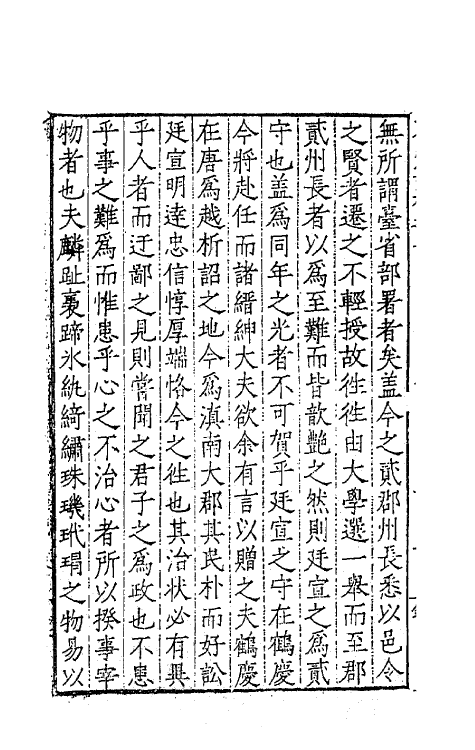 無所謂臺省部署者矣盖今之貳郡州長悉以邑令
之賢者遷之不輕授故徃徃由大學選一舉而至郡
貳州長者以爲至難而皆歆艷之然則廷宣之爲貳
守也盖爲同年之光者不可賀乎廷宣之守在鶴慶
今將赴任而諸縉紳大夫欲余有言以贈之夫鶴慶
在唐爲越析詔之地今爲滇南大郡其民朴而好訟
廷宣明逹忠信惇厚端恪今之徃也其治狀必有異
乎人者而迂鄙之見則嘗聞之君子之爲政也不患
乎事之難爲而惟患乎心之不治心者所以揆事宰
物者也夫麟趾褭蹄氷紈綺繡珠璣玳瑁之物易以